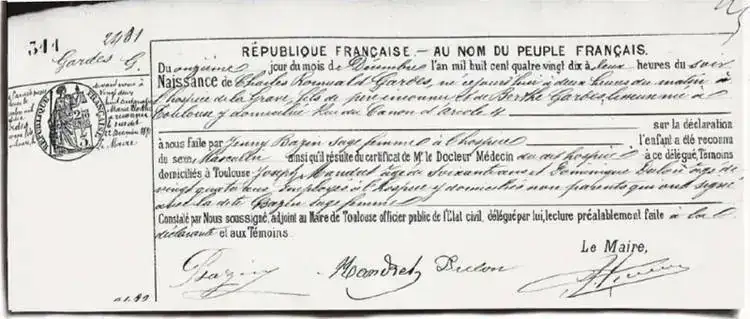 344
2481
Gardes G.
RÉPUBLIQUE FRANÇAISE. — AU NOM DU PEUPLE FRANÇAIS.
Du onzième jour du mois de Décembre l'an mil huit cent quatre vingt dix à deux heures du soir
Naissance de Charles Romuald Gardes, né ce jourd'hui à deux heures du matin à
l'hospice de la Grave, fils de père inconnu et de Berthe Gardes, née à
Toulouse y domiciliée Rue du Canon d'Arcole 4
sur la déclaration
à nous faite par Jenny Bazin sage femme à l'hospice l'enfant a été reconnu
du sexe Masculin ainsi qu'il résulte du certificat de Mr le Docteur Médecin du dit hospice à ce délégué, Témoins
domiciliés à Toulouse Joseph Mandret âgé de soixante ans et Dominique Dulon âgé de
vingt quatre ans employés à l'hospice y domiciliés non parents qui ont signé
avec la dite Bazin sage femme
Constaté par Nous soussigné, adjoint au Maire de Toulouse officier public de l'Etat civil, délégué par lui, lecture préalablement faite à la
déclarante et aux Témoins.
Le Maire,
Bazin Mandret Dulon